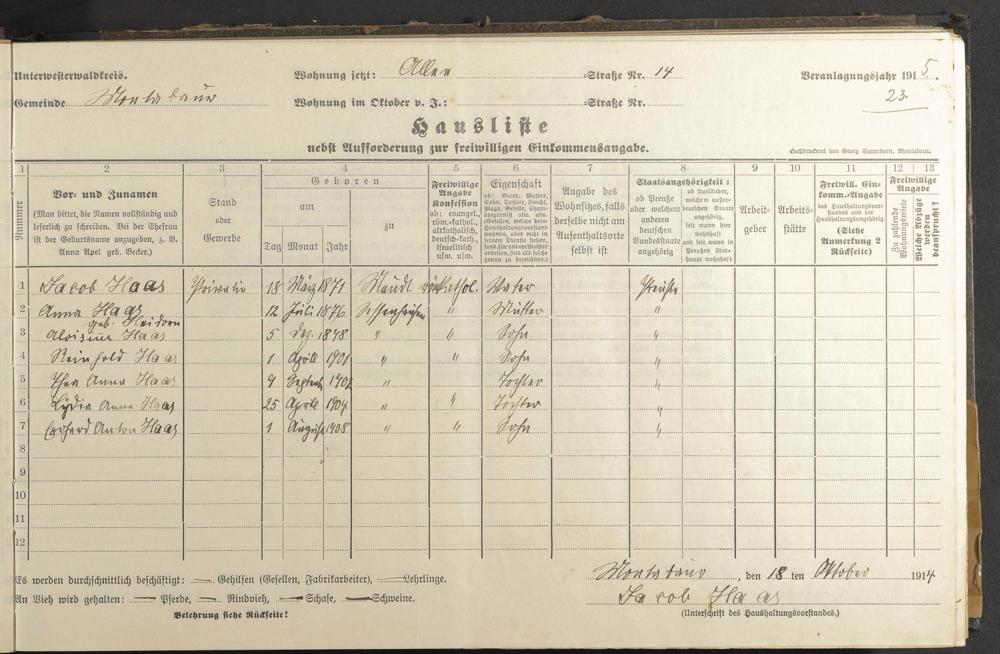 Unterwesterwaldkreis. Wohnung jetzt: Allee =Straße Nr. 14 Veranlagungsjahr 1915.
Gemeinde Montabaur Wohnung im Oktober v. J.: =Straße Nr. 23
Hausliste
nebst Aufforderung zur freiwilligen Einkommensangabe.
Buchdruckerei von Georg Sauerborn, Montabaur.
1 2 3 4 5 6 7 8 9 10 11 12 13
Nummer
Vor- und Zunamen
(Man bittet, die Namen vollständig und
leserlich zu schreiben. Bei der Ehefrau
ist der Geburtsname anzugeben, z. B.
Anna Apel geb. Becker.)
Stand
oder
Gewerbe
Geboren
am
zu
Tag Monat Jahr
Freiwillige
Angabe
Konfession
ob: evangel.,
röm.-kathol.,
altkatholisch,
deutsch-kath.,
israelitisch
usw. usw.
Eigenschaft
Angabe des
Wohnsitzes, falls
derselbe nicht am
Aufenthaltsorte
selbst ist
Staatsangehörigkeit:
ob Preuße
oder welchem
anderen
deutschen
Bundesstaate
angehörig
ob Ausländer,
welchem außer-
deutschen Staate
angehörig,
seit wann hier
wohnhaft
und seit wann in
Preußen über-
haupt wohnhaft
Arbeit-
geber
Arbeits-
stätte
Freiwill. Ein-
komm.-Angabe
des Haushaltungsvor-
standes und der
Haushaltungsangehörig.
(Siehe
Anmerkung 2
Rückseite)
Freiwillige
Angabe
Zu zahlende
Wohnungsmiete
Welche Abzüge
werden
beansprucht?
1 Jacob Haas Privatie 18 März 1871 Staudt röm. kathol. Vater Preuße
2 Anna Haas 12 Juli 1876 " Mutter "
geb. Heidorn
3 Haas 5 Dez. 1898 " " Sohn "
4 Reinhold Haas 1 April 1901 " " Sohn "
5 Thea Anna Haas 9 Septemb 1902 " " Tochter "
6 Lydia Anna Haas 25 April 1904 " " Tochter "
7 Erhard Anton Haas 1 August 1908 " " Sohn "
8
9
10
11
12
Es werden durchschnittlich beschäftigt: — Gehilfen (Gesellen, Fabrikarbeiter), — Lehrlinge.
An Vieh wird gehalten: — Pferde, — Rindvieh, — Schafe, — Schweine.
Belehrung siehe Rückseite!
Montabaur, den 18 ten Oktober 1914
Jacob Haas
(Unterschrift des Haushaltungsvorstandes.)